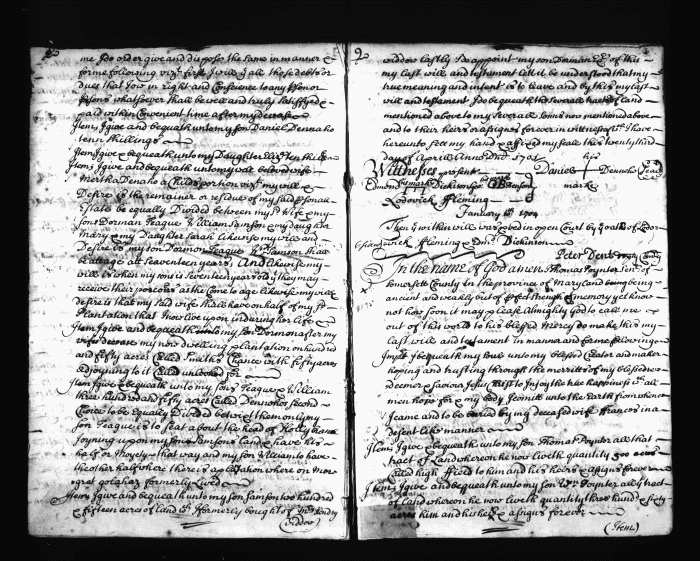 me I do order give and dispose the same in manner &
forme following viz: first I will that all those debts or
dues that I ow in right and Conscience to any person or
persons whatsoever shall be well and truly satisfyed &
paid within Convenient time after my decease
Item I give and bequeath unto my son Daniel Dennaho
tenn shillings
Item I give & bequeath unto my Daughter
Item I give and bequeath unto my well beloved wife
Martha Denaho a Childs portion viz: my will &
Desire is the remainer or residue of my said personall
Estate be equally Divided between my sd. Wife & my
sons Dorman Teague William Sanson & my daughter
Mary & my Daughter Sarah likewise my will and
Desire is my son Dorman Teague Wm. Sanson shall
be att age att seventeen years old And likewise my
will is when my son is seventeen years old they may
receive their portions as the come to age likewise my will &
desire is that my said wife shall have one half of my
Plantation that I now live upon induring her life
Item I give and bequeath unto my son Dorman after my
wifes decease my now dwelling plantation one hundred
and fifty acres Called Pauths Chance with fifty acres
adjoyning to it Called unlooked for
Item I give and bequeath unto my sons Teague & William
three hundred and fifty acres Called Dennohos second
Choice to be Equally Divided betwixt them only my
son Teague is to seat about the head of Holly
Joyning upon my son Sansons land & have his
half or Moyety that way and my son William to have
the other half where there is a plantation where on Mar
gret golahar formerly Lived
Item I give and bequeath unto my son Sanson two hundred
& fifteen acres of land formerly bought of Henry
widdow
2
widdow Lastly I do appoint my son Dorman Exr. of this
my last will and testament Lett it be understood that my
true meaning and intent is to leave and by this my last
will and testament I do bequeath the several tracts of land
mentioned above to my several sons now mentioned above
and to their heirs or assignes forever in wittness I have
hereunto sett my hand & affixed my seale this twenty third
day of Aprill Anno Dmd. 1702
his
Wittnesses present Daniel Denncho Seale
Edmond Dickinson marke
Rodorick Fleming
January 1704
Then the within will was proved in open Court by the oaths of Rodo
rick Fleming & Edmd. Dickinson
Peter Dent
In the name of God amen I Thomas Poynter Senr. of
Somersett County In the province of Maryland being
ancient and weakly but of perfect though & memory yet know
not how soon it may please Almighty God to call me
out of this world to his blessed Mercy do make this my
Last will and testament In manner and forme following
Impr. I bequeath my soul unto my blessed Creator and maker
hoping and trusting through the merritts of my blessed re
deemer & saviour Jesus Christ to Injoy the true happiness all
men hope for & my body I committ unto the Earth from whence
I came and to be buried by my deceased wife Frances in a
Desent like manner
Item I give & bequeath unto my son Thomas Poynter all that
tract of Land whereon he now liveth quantity 300 acres
Called high to him and his heirs & assigns forever
Item I give and bequeath unto my son Wm. Poynter all that tract
of Land whereon he now liveth quantity three hundred & sixty
acres him and his heirs & assigns forever
(Item)